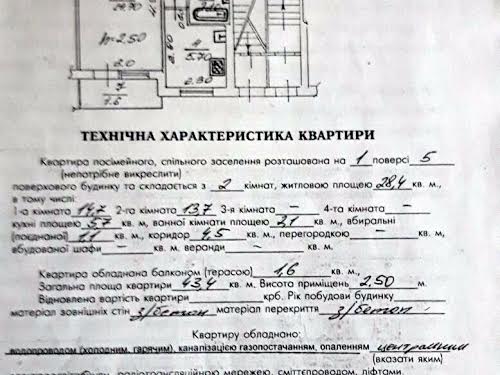 29.70
h=2.50
2.0
7
1.6
4
5.70
2.80
ТЕХНІЧНА ХАРАКТЕРИСТИКА КВАРТИРИ
Квартира посімейного, спільного заселення розташована на 1 поверсі 5
(непотрібне викреслити)
поверхового будинку та складається з 2 кімнат, житловою площею 28,4 кв. м.,
в тому числі:
1-а кімната 14,7 2-го кімната 13,7 3-я кімната – 4-та кімната –
кухні площею 5,7 кв. м, ванної кімнати площею 2,1 кв. м., вбиральні
(поєднаної) 1,1 кв. м., коридор 4,5 кв. м., перегородкою кв. м.,
вбудованої шафи – кв. м. веранди – кв. м.
Квартира обладнана балконом (терасою) 1,6 кв. м.,
Загальна площа квартири 43,4 кв. м. Висота приміщень 2,50 м.
Відновлена вартість квартири крб. Рік побудови будинку
матеріал зовнішніх стін з/бетон матеріал перекриття з/бетон
Квартиру обладнано:
водопроводом (холодним, гарячим), каналізацією газопостачанням, опаленням центральним
(вказати яким)
радіотрансляційною мережею, сміттєпроводом, ліфтами